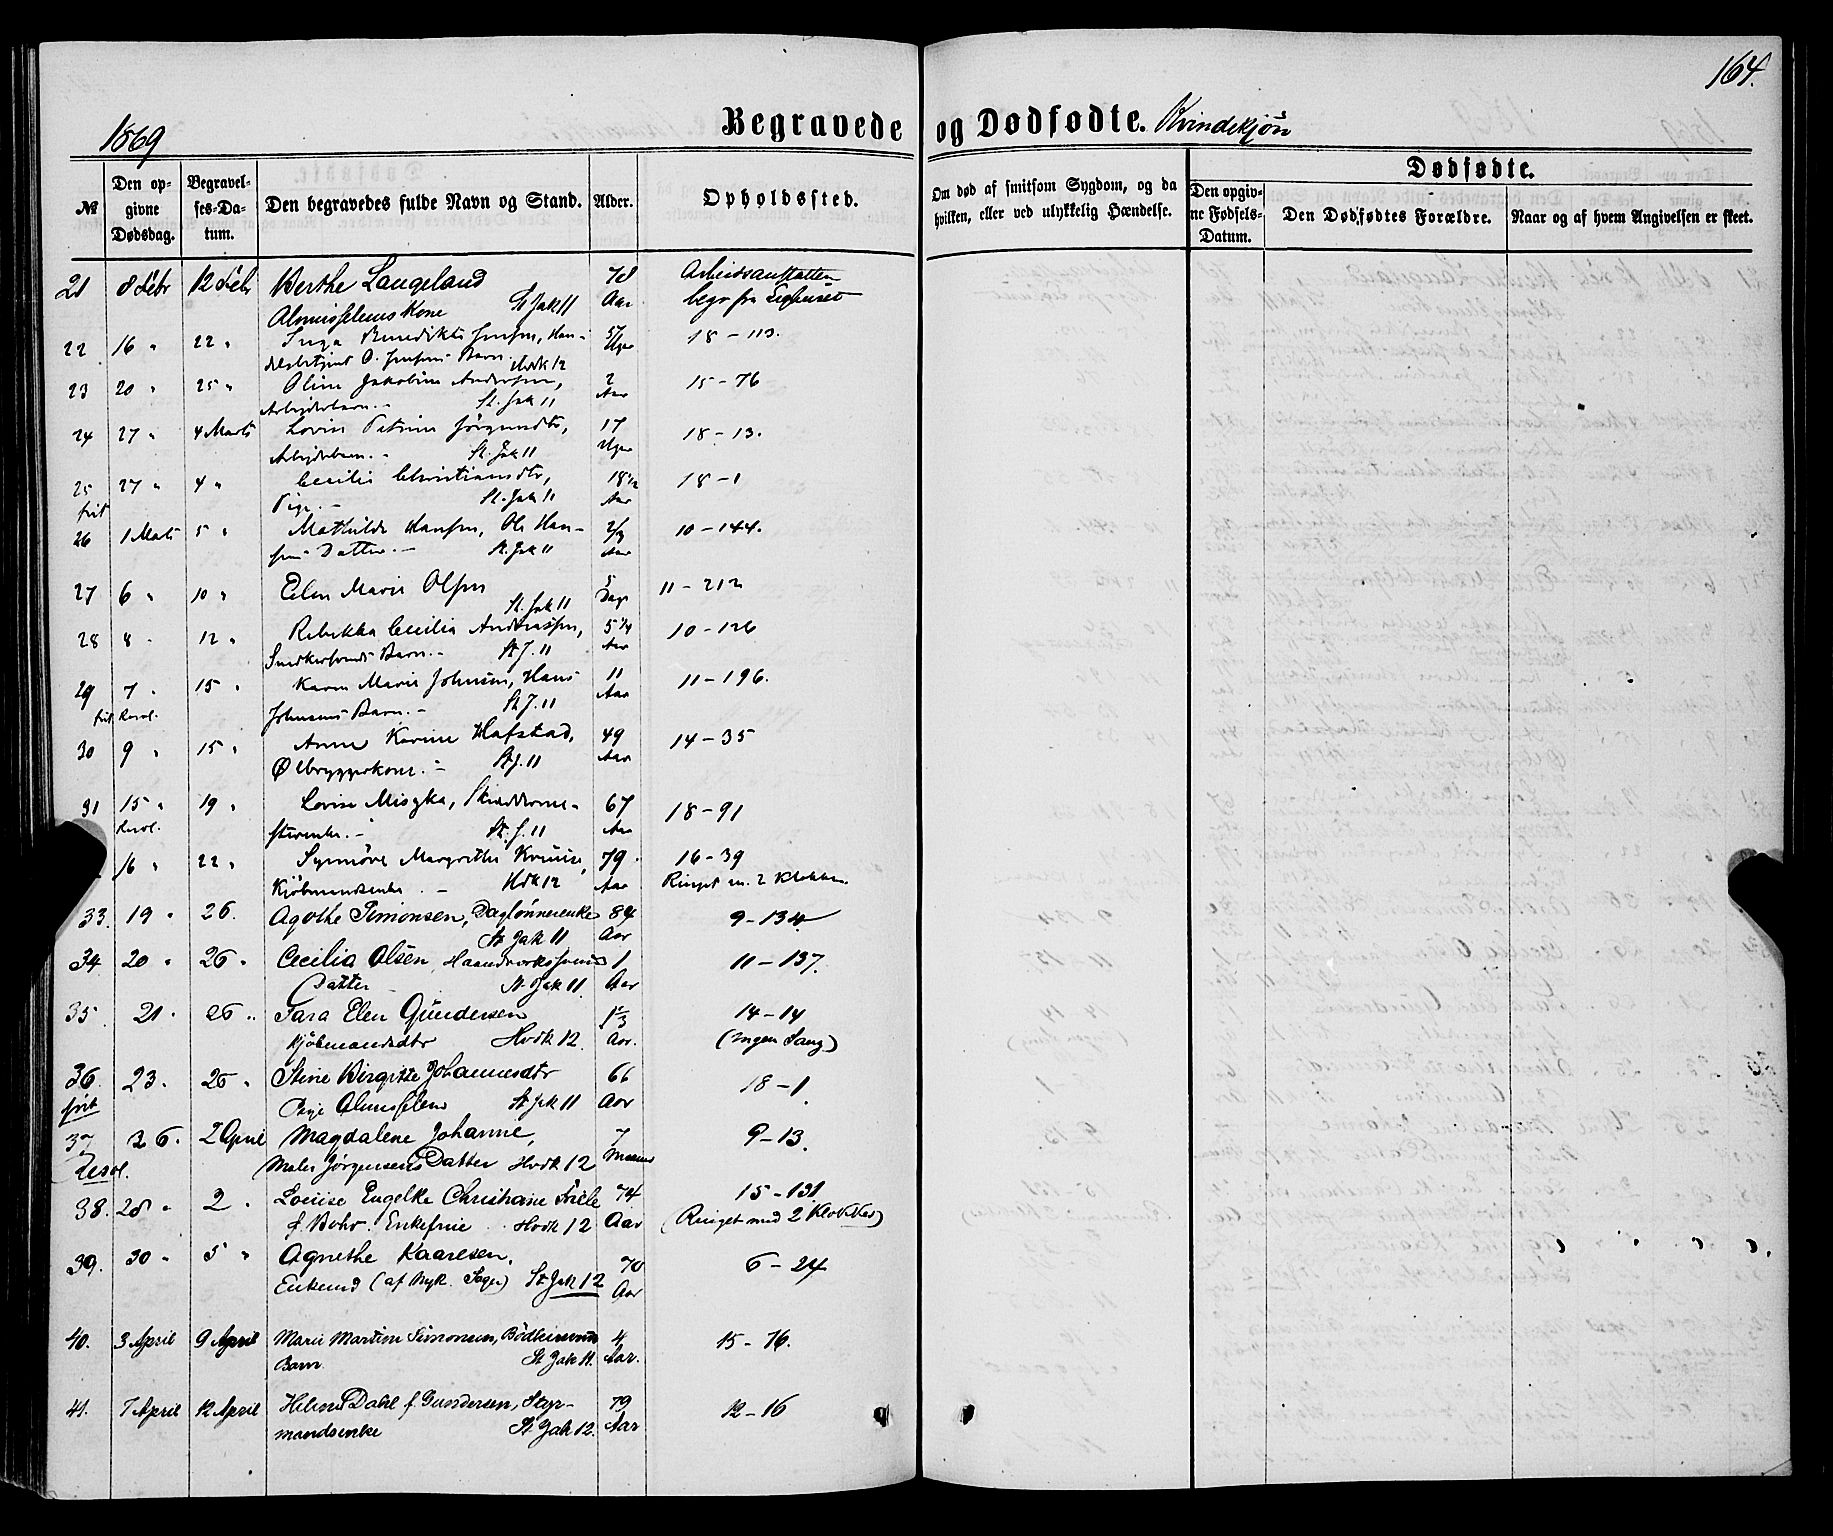 164.
1869
Begravede og Dødfødte. Kvindekjøn
№
Den opgivne Dødsdag.
Begravelses-Datum.
Den begravedes fulde Navn og Stand.
Alder.
Opholdssted.
Om død af smitsom Sygdom, og da hvilken, eller ved ulykkelig Hændelse.
Dødfødte.
Den opgivne Fødsels-Datum.
Den Dødfødtes Forældre.
Naar og af hvem Angivelsen er skeet.
21 8 Febr 12 Febr Berthe Langeland 78 Arbeidsanstalten
Almisselems Kone St Jak 11 Aar begr fra Lighuset
22 16 " 22 " Inga Benedikte Jensen, Han- 18 - 113.
O. Jensens Barn. Hvdk 12 Uger
23 20 " 25 " Oline Jakobine Andersen, 2 15 - 76
Arbeiderbarn. - St. Jak 11 Aar
24 27 " 4 Marts Lovise Petrine Jørgensdtr, 17 18 - 13.
Arbeiderbarn. - St. Jak 11 Uger
25 27 " 4 " Cecilie Christiansdtr, 18 1/2 18 - 1
frit Pige. - St. Jak 11 Aar
26 1 Marts 5 " Mathilde Hansen, Ole Han- 2/3 10 - 144.
sens Datter. - St. Jak 11 Aar
27 6 " 10 " Elen Marie Olsen 5 11 - 212
St. Jak 11 Dage
28 8 " 12 " Rebekka Cecilia Andreassen, 5 1/4 10 - 126
Snedkersvends Barn. - St J. 11 Aar
29 7 " 15 " Karen Marie Johnsen, Hans 11 11 - 196.
frit Johnsens Barn. - St J. 11 Aar
30 9 " 15 " Anne Karine Hafstad, 49 14 - 35
Ølbryggerkone. - St J. 11 Aar
31 15 " 19 " Lovise Miszka, Skrædderme- 67 18 - 91
sterenke. - St. J. 11 Aar
16 " 22 " Synnöve Margrethe Kruuse, 79 16 - 39
Kjöbmandsenke. - Hdk 12 Aar Ringet m. 2 Klokker.
33. 19 " 26. Agothe Simonsen, Daglønnerenke 84 9 - 134
St Jak 11 Aar
34 20 " 26 " Cecilia Olsen, Haandværkssvends 1 11 - 137.
Datter St. Jak 11. Aar
35 21 " 26 " Sara Elen Gundersen 1 2/3 14 - 14
Kjøbmandsdtr Hvdk 12. Aar. (Ingen Sang)
36. 23. 26 " Stine Birgitte Johannesdtr 66 18 - 1.
frit Pige Almisselem St Jak 11 Aar
37 26. 2 April Magdalene Johanne, 7 9 - 13.
Resol. Maler Jørgensens Datter Hvdk 12
38. 28 " 2 " Louise Engelke Christiane Friele 74 15 - 131
f. Bohr. Enkefrue Hvdk 12 Aar (Ringet med 2 Klokker)
39. 30 " 5 " Agnethe Kaaresen, 78 6 - 24
(af Nyk. Sogn) St Jak 12 Aar
40. 3 April 9 April Marie Martine Simonsen, Bødkersvends 4 15 - 76.
Barn. St Jak 11. Aar.
41. 7 April 12 April Helene Dahl f. Gundersen, Styr- 79 12 - 16
mandsenke St. Jak 12. Aar